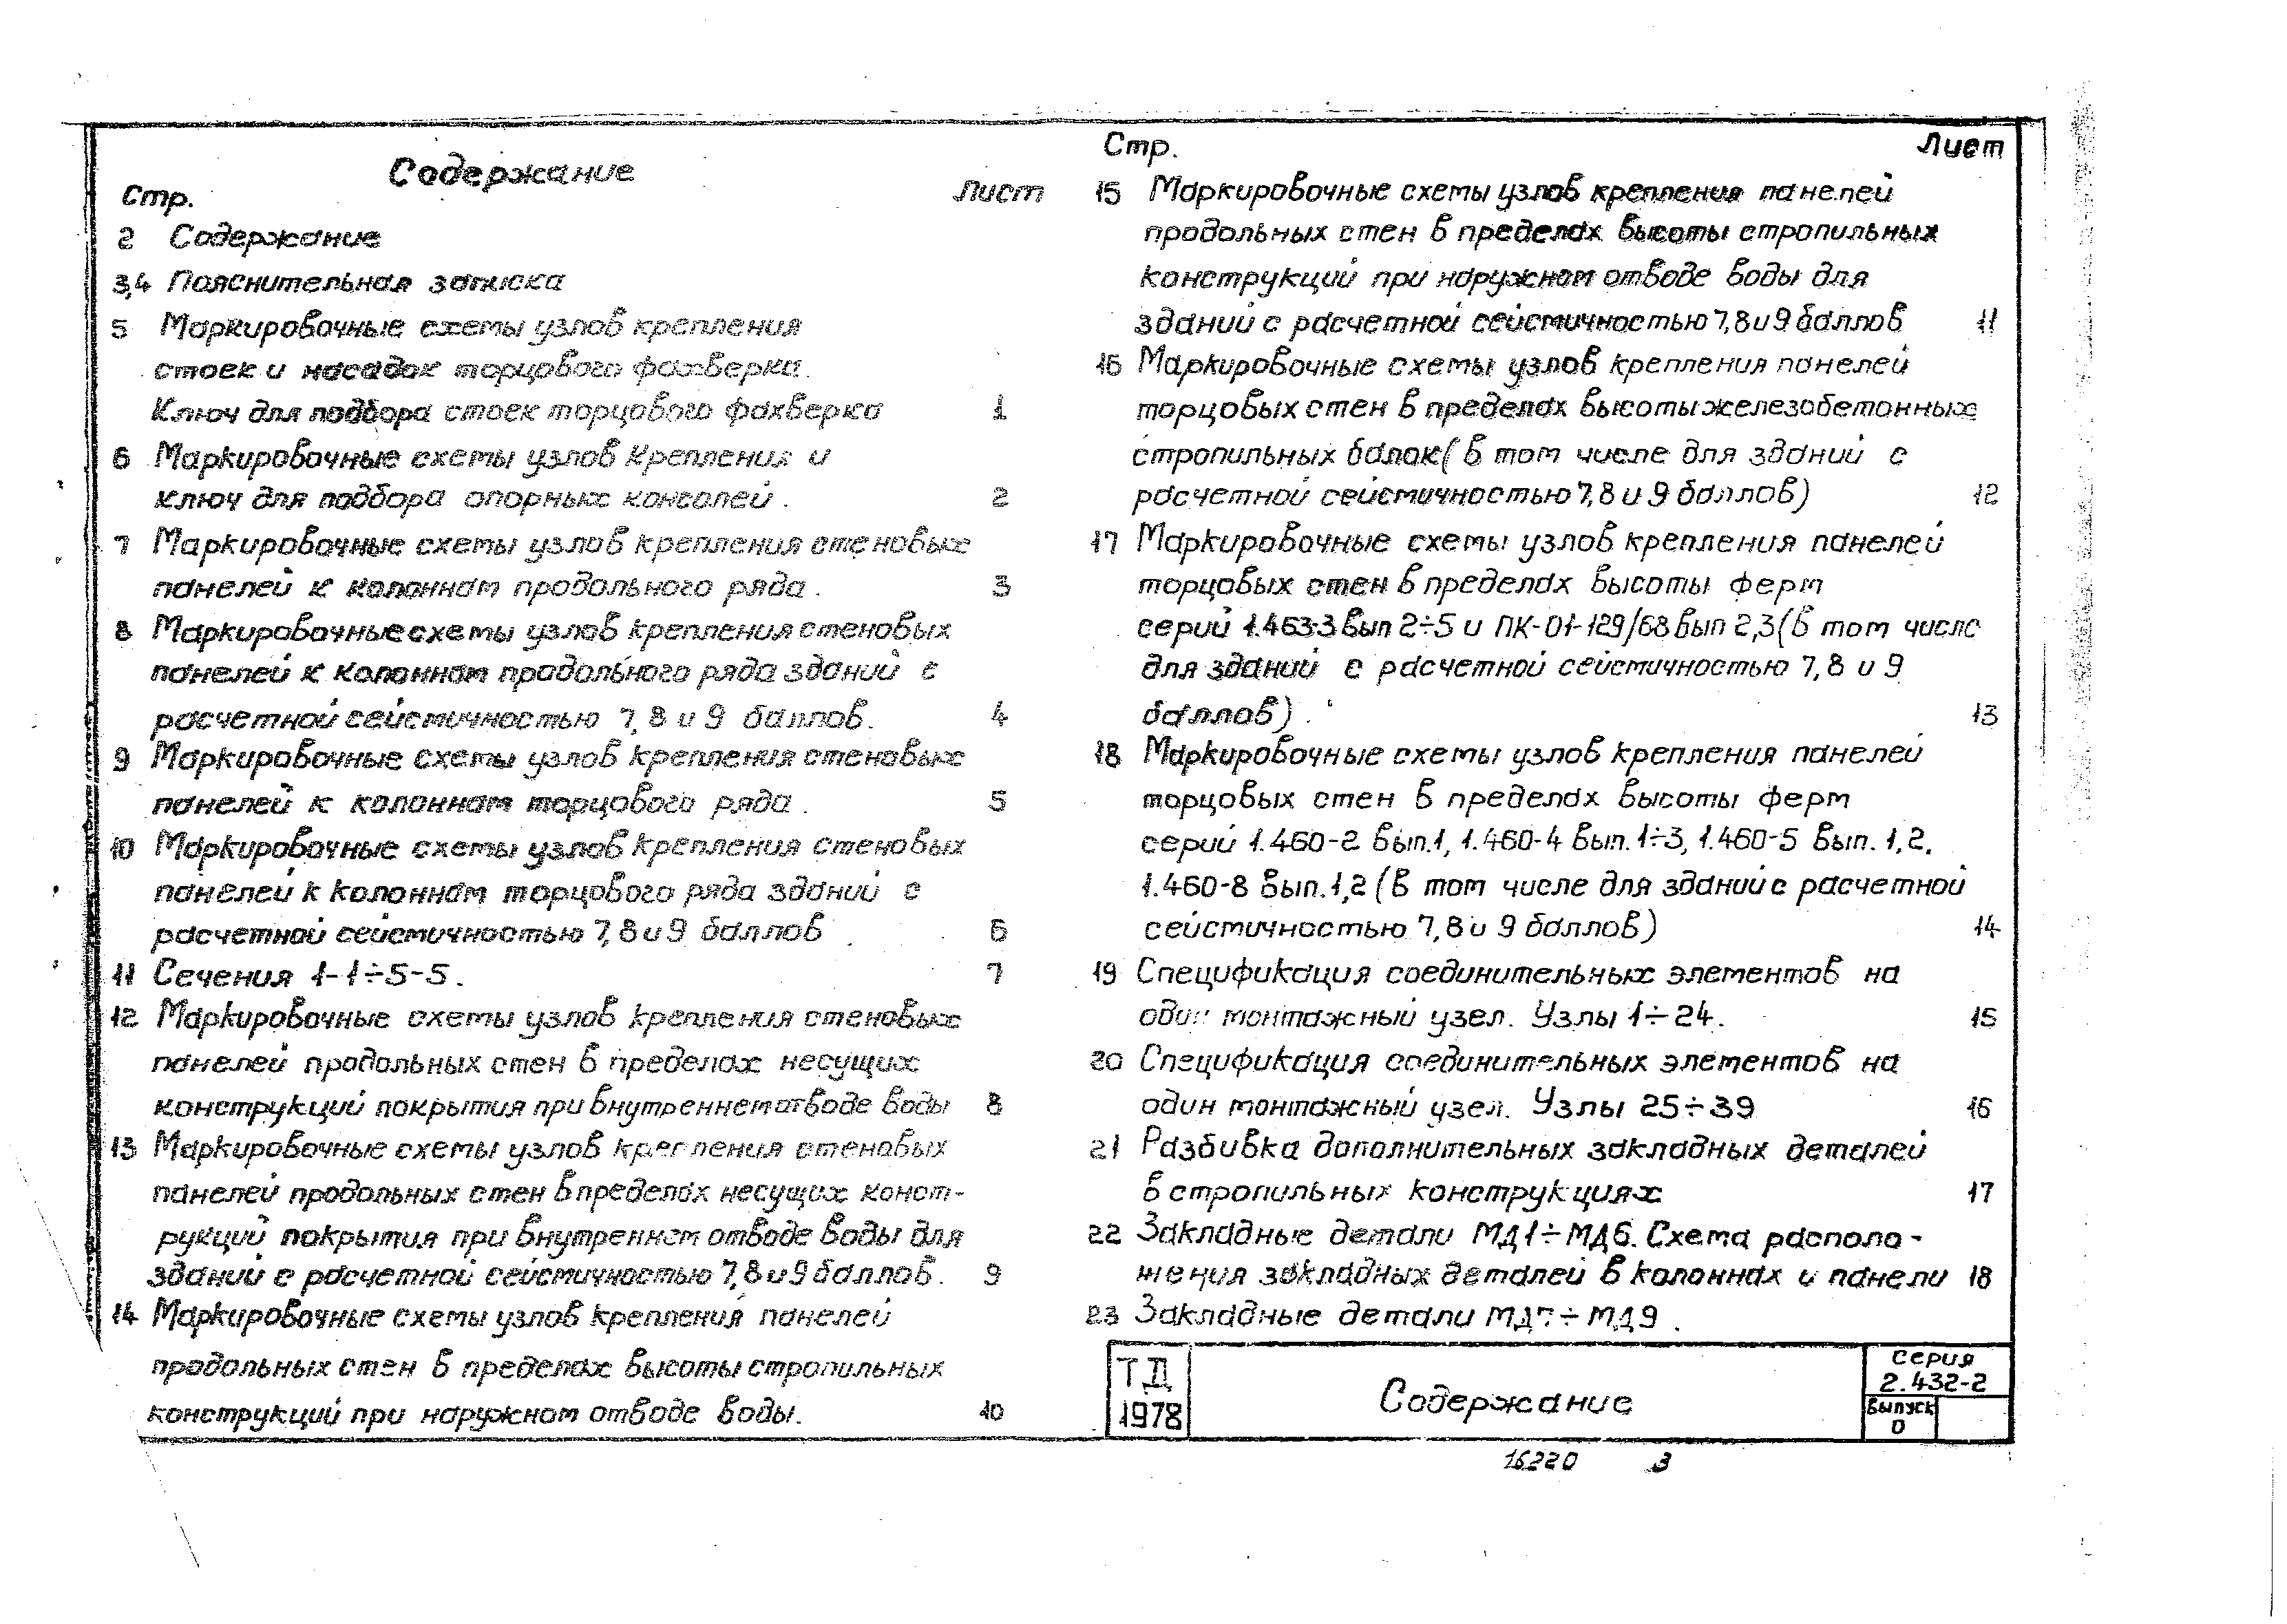 Содержание
Стр. Лист
2 Содержание
3,4 Пояснительная записка
5 Маркировочные схемы узлов крепления
стоек и насадок торцового фахверка.
Ключ для подбора стоек торцового фахверка 1
6 Маркировочные схемы узлов крепления и
ключ для подбора опорных консолей. 2
7 Маркировочные схемы узлов крепления стеновых
панелей к колоннам продольного ряда. 3
8 Маркировочные схемы узлов крепления стеновых
панелей к колоннам продольного ряда зданий с
расчетной сейсмичностью 7, 8 и 9 баллов. 4
9 Маркировочные схемы узлов крепления стеновых
панелей к колоннам торцового ряда. 5
10 Маркировочные схемы узлов крепления стеновых
панелей к колоннам торцового ряда зданий с
расчетной сейсмичностью 7, 8 и 9 баллов. 6
11 Сечения 1-1÷5-5. 7
12 Маркировочные схемы узлов крепления стеновых
панелей продольных стен в пределах несущих
конструкций покрытия при внутреннем отводе воды 8
13 Маркировочные схемы узлов крепления стеновых
панелей продольных стен в пределах несущих конст-
рукций покрытия при внутреннем отводе воды для
зданий с расчетной сейсмичностью 7, 8 и 9 баллов. 9
14 Маркировочные схемы узлов крепления панелей
продольных стен в пределах высоты стропильных
конструкций при наружном отводе воды. 10
Стр. Лист
15 Маркировочные схемы узлов крепления панелей
продольных стен в пределах высоты стропильных
конструкций при наружном отводе воды для
зданий с расчетной сейсмичностью 7, 8 и 9 баллов 11
16 Маркировочные схемы узлов крепления панелей
торцовых стен в пределах высоты железобетонных
стропильных балок (в том числе для зданий с
расчетной сейсмичностью 7, 8 и 9 баллов) 12
17 Маркировочные схемы узлов крепления панелей
торцовых стен в пределах высоты ферм
серий 1.463-3 вып 2÷5 и ПК-01-129/68 вып 2,3 (в том числе
для зданий с расчетной сейсмичностью 7, 8 и 9
баллов). 13
18 Маркировочные схемы узлов крепления панелей
торцовых стен в пределах высоты ферм
серий 1.460-2 вып.1, 1.460-4 вып. 1÷3, 1.460-5 вып. 1,2,
1.460-8 вып. 1,2 (в том числе для зданий с расчетной
сейсмичностью 7, 8 и 9 баллов) 14
19 Спецификация соединительных элементов на
один монтажный узел. Узлы 1÷24. 15
20 Спецификация соединительных элементов на
один монтажный узел. Узлы 25÷39 16
21 Разбивка дополнительных закладных деталей
в стропильных конструкциях 17
22 Закладные детали МД1÷МД6. Схема располо-
жения закладных деталей в колоннах и панели 18
23 Закладные детали МД7÷МД9.
ТД
1978
Содержание
Серия
2.432-2
Выпуск
0
16220 3